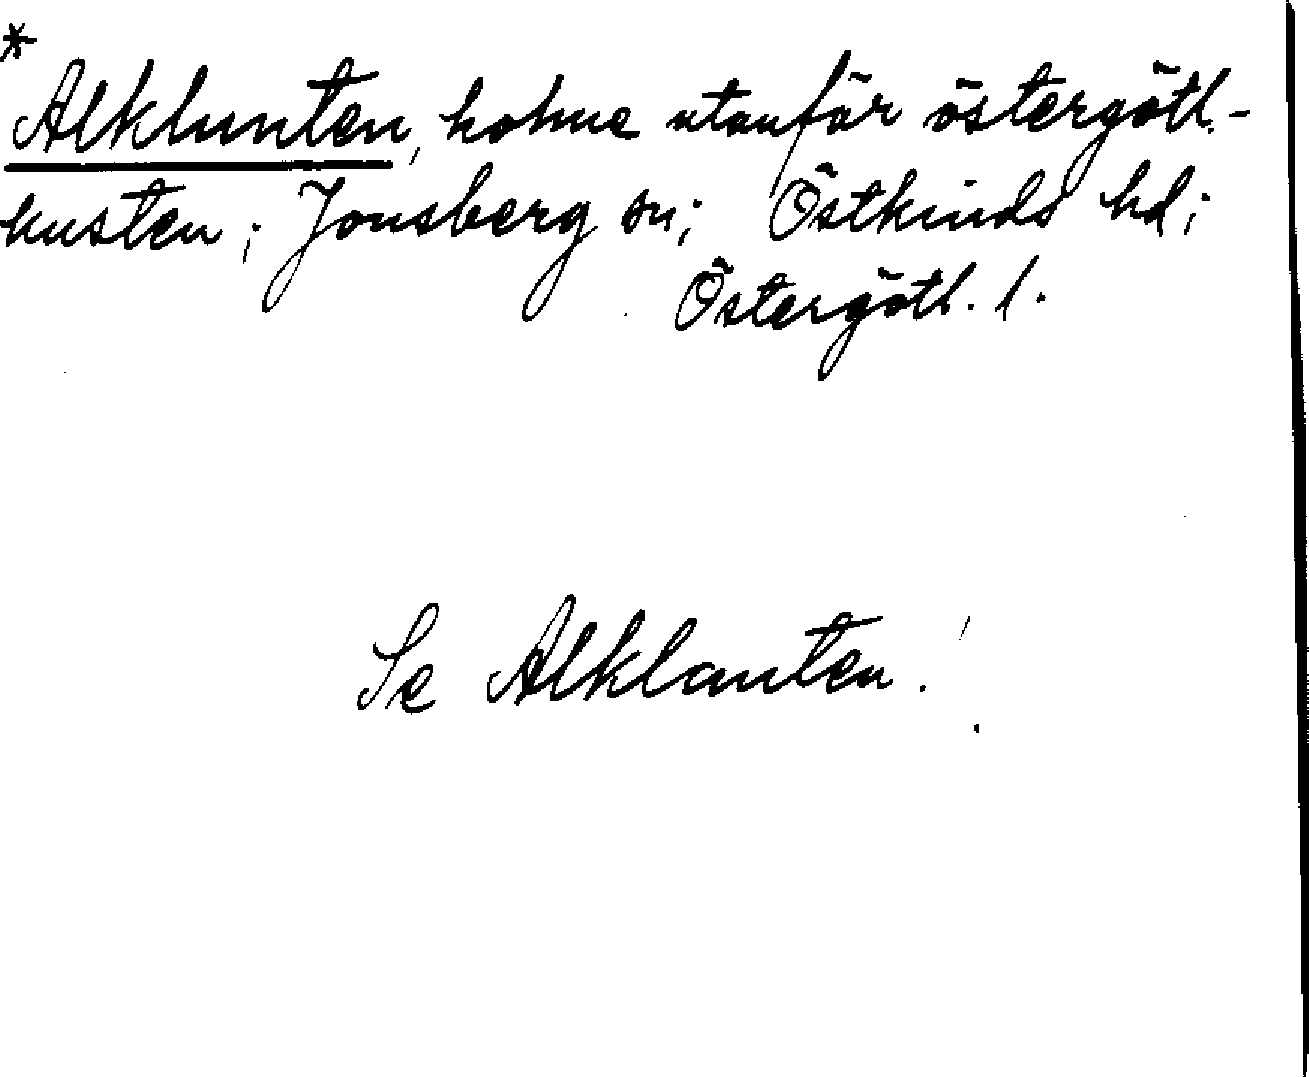 *
Alklunten, holme utanför östergötl.-
kusten; Jonsberg sn; Östkinds hd;
Östergötl. l.
Se Alklanten!